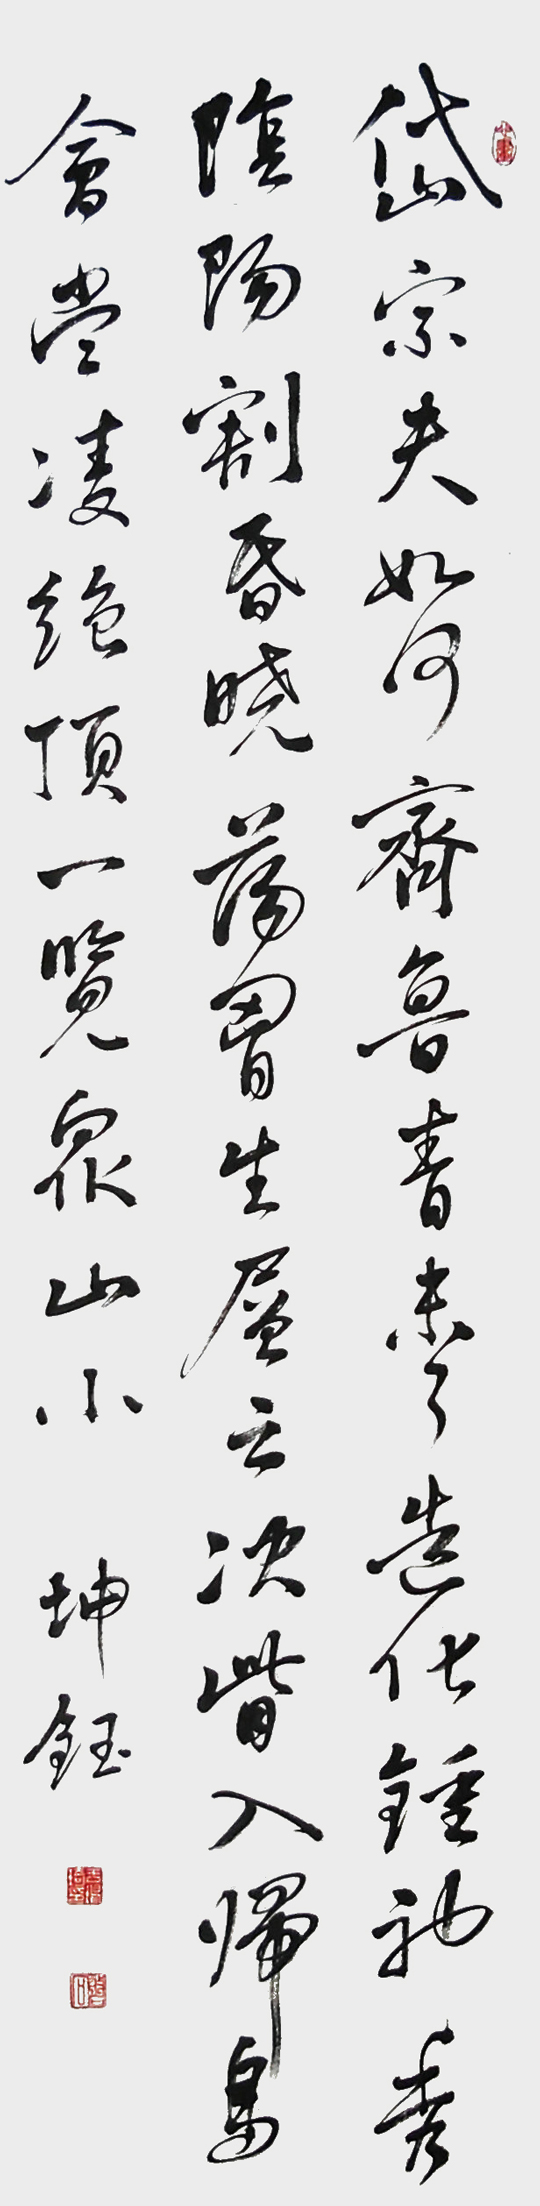 岱宗夫如何齊魯青未了造化鍾神秀
陰陽割昏晓蕩胷生層云决眥入帰鳥
會當凌絶頂一覽眾山小 坤鈺